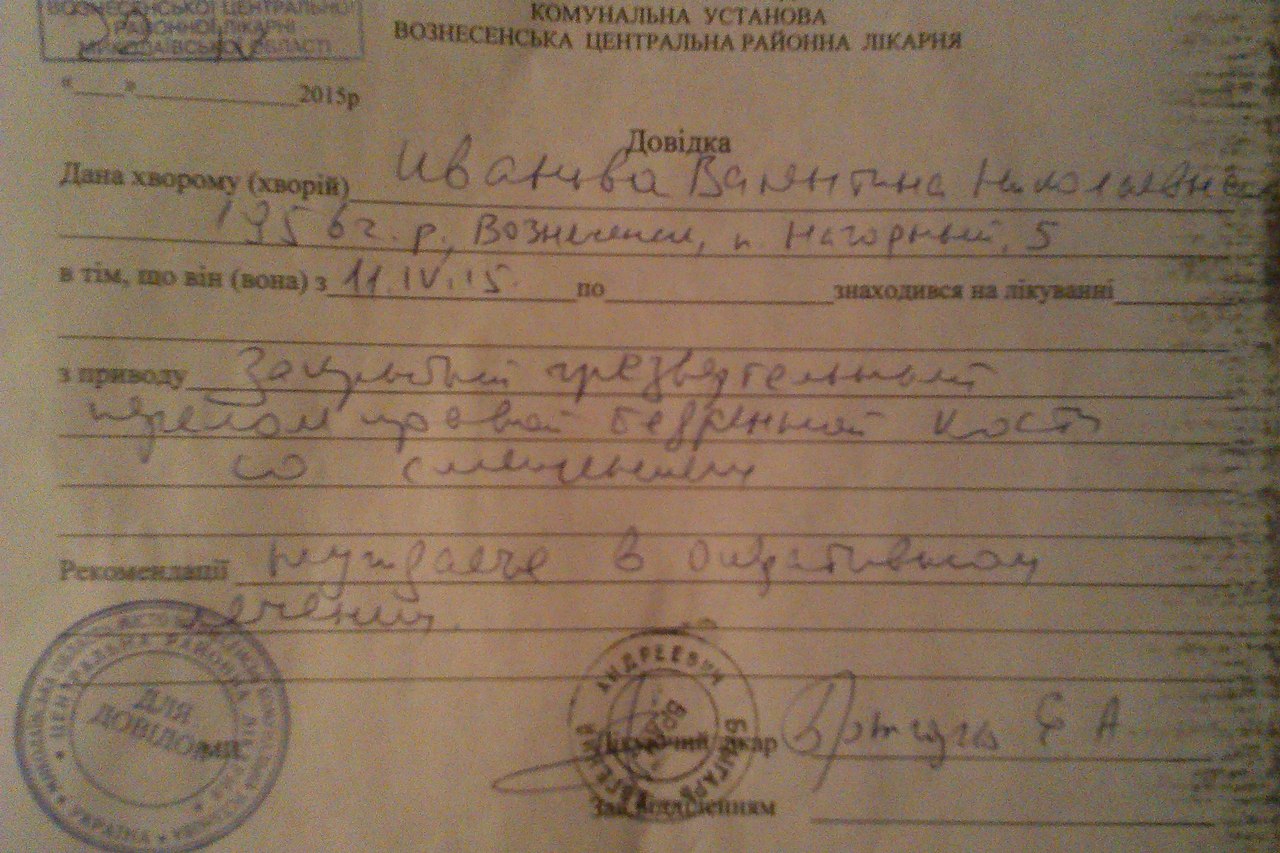 ВОЗНЕСЕНСЬКОЇ ЦЕНТРАЛЬНОЇ
РАЙОННОЇ ЛІКАРНІ
МИКОЛАЇВСЬКОЇ ОБЛАСТІ
КОМУНАЛЬНА УСТАНОВА
ВОЗНЕСЕНСЬКА ЦЕНТРАЛЬНА РАЙОННА ЛІКАРНЯ
«____»____________2015р
Довідка
Дана хворому (хворій) Иванова Валентина Николаевна
1956 г. р., Вознесенск, п. Нагорный, 5
в тім, що він (вона) з 11.IV.15. по знаходився на лікуванні
з приводу Закрытый чрезвертельный
перелом правой бедренной кости
со смещением
Рекомендації нуждается в оперативном
лечении.
ЦЕНТРАЛЬНА РАЙОННА ЛІКАРНЯ
УКРАЇНА
ДЛЯ
ДОВІДОК
АНДРЕЕВИЧ
ЕВГЕНИЙ
Лікуючий лікар Е А
Зав.відділенням